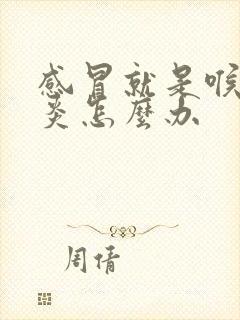 感冒就是喉
炎怎麼办
周倩